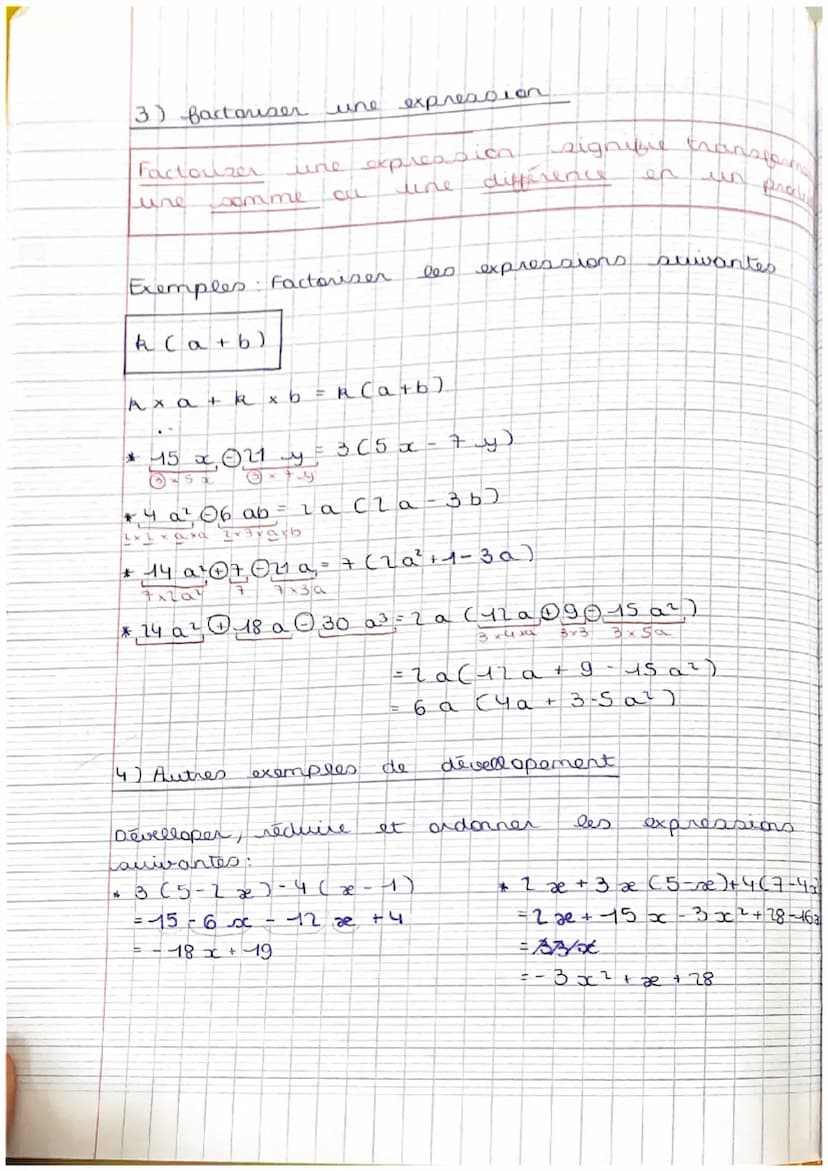 3) factoriser une expression
Factoriser une expression signifie transforme
une somme ou une différence en un produ
Exemples : Factoriser les expressions suivantes
k (a + b)
k × a + k × b = k (a+b)
* 15 x ⊖ 21 y = 3 (5 x - 7 y)
③ × 5 x ③ × 7 y
* 4 a² ⊖ 6 ab = 2 a (2 a - 3 b)
2 × 2 × a × a 2 × 3 × a × b
* 14 a² ⊕ 7 ⊖ 21 a = 7 (2 a² + 1 - 3 a)
7 × 2 a² 7 7 × 3 a
* 24 a² ⊕ 18 a ⊖ 30 a³ = 2 a (12 a ⊕ 9 ⊖ 15 a²)
3 × 4 × a 3 × 3 3 × 5 a
= 2 a (12 a + 9 - 15 a²)
= 6 a (4 a + 3 - 5 a²)
4) Autres exemples de dévellopement
Dévelloper, réduire et ordonner les expressions
suivantes :
* 3 (5 - 2 x) - 4 (x - 1)
= 15 - 6 x - 12 x + 4
= - 18 x + 19
* 2 x + 3 x (5 - x) + 4 (7 - 4x
= 2 x + 15 x - 3 x² + 28 - 16x
= - 3 x² + x + 28